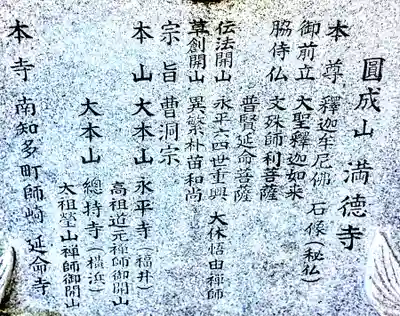 圓成山 満徳寺
本尊 釋迦牟尼佛 石像(秘仏)
御前立 大聖釋迦如来
脇侍仏 文殊師利菩薩
普賢延命菩薩
伝法開山 永平六四世重興 大休悟由禅師
草創開山 異繁朴苗和尚
宗旨 曹洞宗
本山 大本山 永平寺(福井)
高祖道元禅師御開山
大本山 總持寺(横浜)
太祖瑩山禅師御開山
本寺 南知多町師崎 延命寺